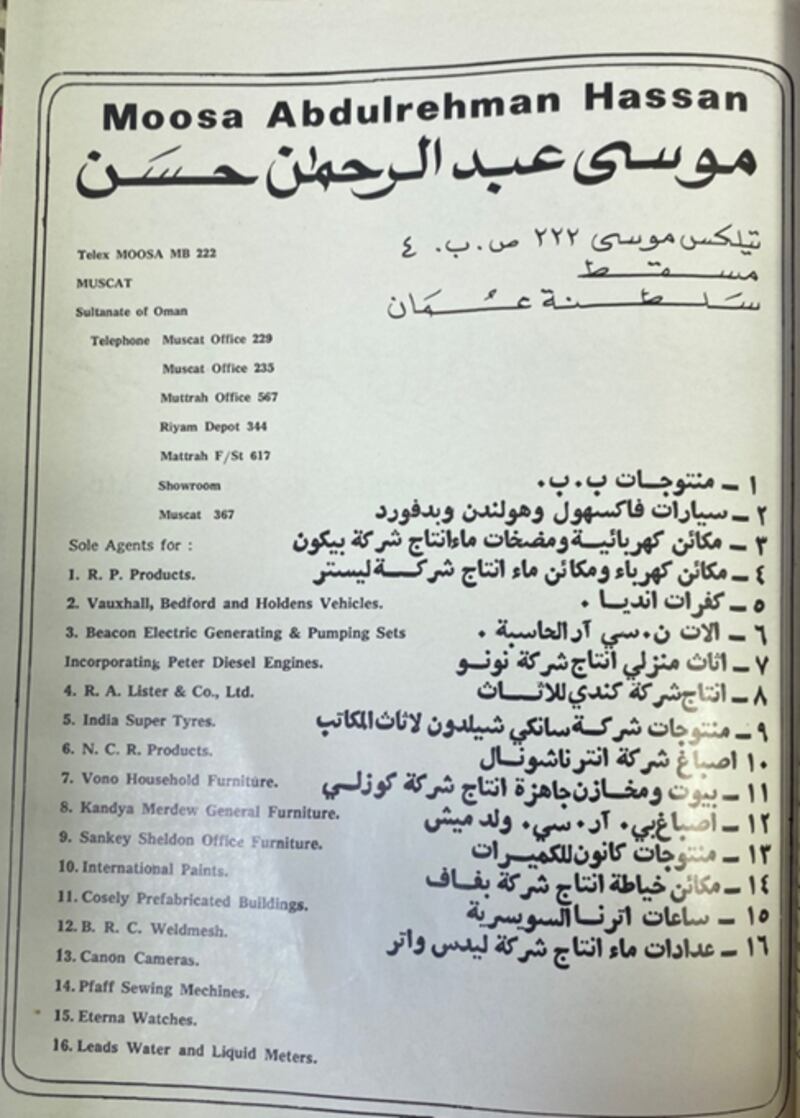 Moosa Abdulrehman Hassan
موسى عبد الرحمن حسن
تيلكس موسى ٢٢٢ ص.ب. ٤
مسقط
سلطنة عمان
Telex MOOSA MB 222
MUSCAT
Sultanate of Oman
Telephone Muscat Office 229
Muscat Office 235
Muttrah Office 567
Riyam Depot 344
Mattrah F/St 617
Showroom
Muscat 367
Sole Agents for :
1. R. P. Products.
2. Vauxhall, Bedford and Holdens Vehicles.
3. Beacon Electric Generating & Pumping Sets
Incorporating Peter Diesel Engines.
4. R. A. Lister & Co., Ltd.
5. India Super Tyres.
6. N. C. R. Products.
7. Vono Household Furniture.
8. Kandya Merdew General Furniture.
9. Sankey Sheldon Office Furniture.
10. International Paints.
11. Cosely Prefabricated Buildings.
12. B. R. C. Weldmesh.
13. Canon Cameras.
14. Pfaff Sewing Mechines.
15. Eterna Watches.
16. Leads Water and Liquid Meters.
١ – منتوجات ب.ب.
٢ – سيارات فاكسهول وهولندن وبدفورد
٣ – مكائن كهربائية ومضخات ماءانتاج شركة بيكون
٤ – مكائن كهرباء ومكائن ماء انتاج شركة ليستر
٥ – كفرات انديا .
٦ – الات ن.سي آر الحاسبة .
٧ – اثاث منزلي انتاج شركة نونو
٨ – انتاج شركة كندي للاثاث
٩ – منتوجات شركة سانكي شيلدون لاثاث المكاتب
١٠ اصباغ شركة انترناشونال
١١ – بيوت ومخازن جاهزة انتاج شركة كوزلي
١٢ – اصباغ بي. آر.سي. ولد ميش
١٣ – منتوجات كانون للكميرات
١٤ – مكائن خياطة انتاج شركة بفاف
١٥ – ساعات اترنا السويسرية
١٦ – عدادات ماء انتاج شركة ليدس واتر